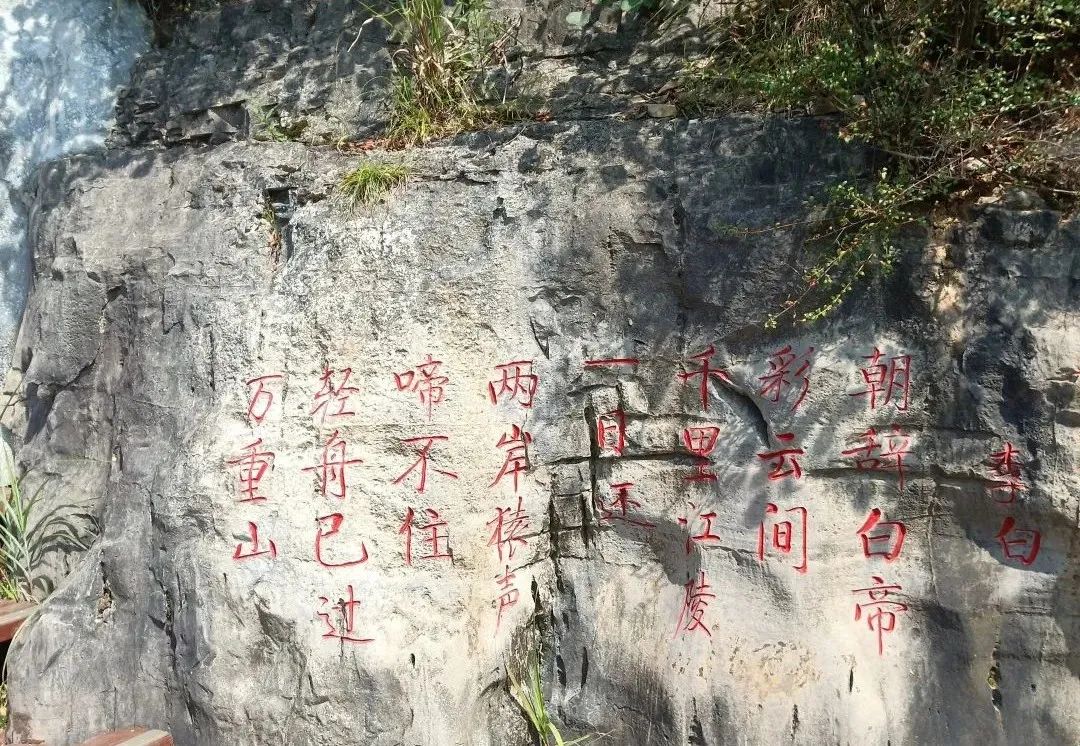 李白
朝辞白帝
彩云间
千里江陵
一日还
两岸猿声
啼不住
轻舟已过
万重山